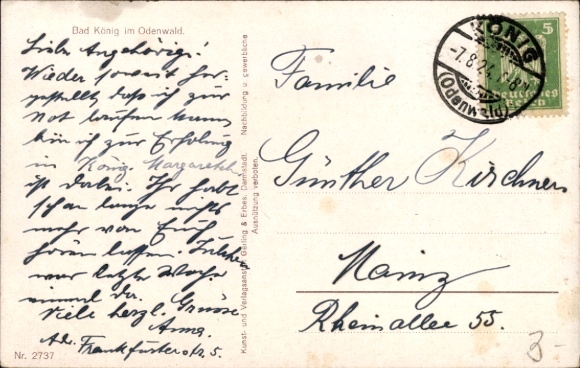 Bad König im Odenwald.
Liebe Angehörige!
Wieder soweit her-
gestellt daß ich zur
Not laufen kann
bin ich zur Erholung
in König. Margareth
ist dabei. Ihr habt
schon lange nichts
mehr von Euch
hören lassen.
war letzte Woche
einmal da.
Viele herzl. Grüsse
Anna.
Adr. Frankfurterstr. 5.
Nr. 2737
Kunst- und Verlagsanstalt Gerling & Erbes, Darmstadt. Nachbildung u. gewerbliche
Ausnützung verboten.
KÖNIG
-7.8.24.
(ODENWALD)
5
Deutsches
Reich
Familie
Günther Kirchner
Mainz
Rheinallee 55.
3-